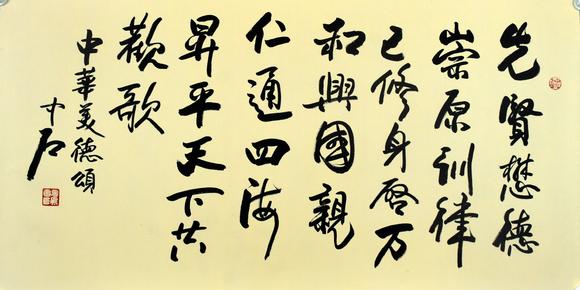 先賢懋德
崇原訓律
己修身启万
和興國親
仁通四海
昇平天下共
歡歌
中華美德頌
中石